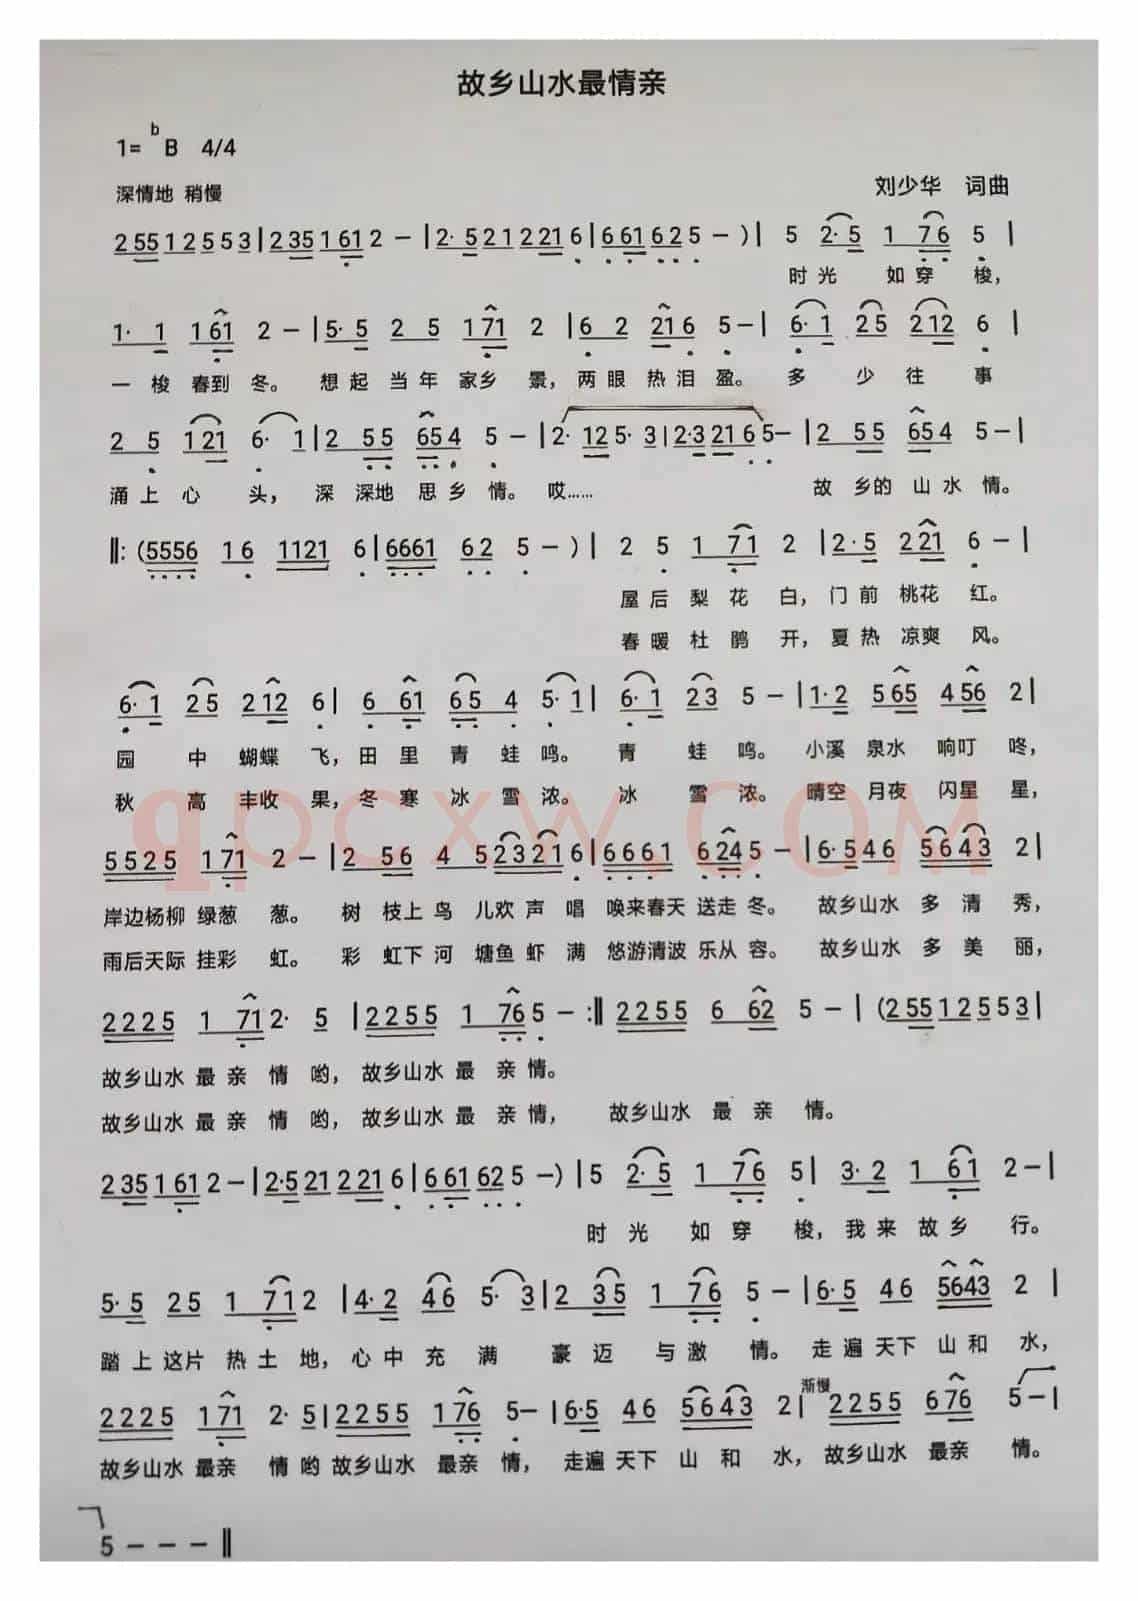 故乡山水最情亲
1= ᵇB 4/4
深情地 稍慢
刘少华 词曲
2 55 1 2 5 5 3 | 2 35 1 61 2 – | 2· 5 2 1 2 21 6 | 6 61 6 2 5 – ) | 5 2· 5 1 76 5 |
时 光 如 穿 梭，
1· 1 1 61 2 – | 5· 5 2 5 1 71 2 | 6 2 21 6 5 – | 6· 1 2 5 2 12 6 |
一 梭 春到 冬。 想 起 当 年 家乡 景， 两 眼 热 泪 盈。 多 少 往 事
2 5 1 21 6· 1 | 2 55 65 4 5 – | 2· 12 5· 3 | 2·3 21 6 5 – | 2 55 65 4 5 – |
涌 上 心 头， 深 深地 思 乡 情。 哎…… 故 乡的 山 水 情。
‖: (5556 1 6 1121 6 | 6661 6 2 5 – ) | 2 5 1 71 2 | 2· 5 2 21 6 – |
屋 后 梨 花 白， 门 前 桃花 红。
春 暖 杜 鹃 开， 夏 热 凉爽 风。
6· 1 2 5 2 12 6 | 6 61 65 4 5· 1 | 6· 1 2 3 5 – | 1· 2 5 65 4 56 2 |
园 中 蝴蝶 飞， 田 里 青 蛙 鸣。 青 蛙 鸣。 小溪 泉水 响叮 咚，
秋 高 丰收 果， 冬 寒 冰 雪 浓。 冰 雪 浓。 晴空 月夜 闪星 星，
qpcxw.COM
5 5 2 5 1 71 2 – | 2 56 4 5 2321 6 | 6 6 6 1 6 24 5 – | 6· 5 4 6 5 6 4 3 2 |
岸边杨柳 绿葱 葱。 树 枝上 鸟 儿欢 声 唱 唤来春天 送走 冬。 故乡山水 多 清 秀，
雨后天际 挂彩 虹。 彩 虹下 河 塘鱼 虾 满 悠游清波 乐从 容。 故乡山水 多 美 丽，
2 2 2 5 1 71 2· 5 | 2 2 5 5 1 76 5 – :‖ 2 2 5 5 6 62 5 – | (2 55 1 2 5 5 3 |
故乡山水 最 亲 情 哟， 故乡山水 最 亲 情。
故乡山水 最 亲 情 哟， 故乡山水 最 亲 情， 故乡山水 最 亲 情。
2 35 1 61 2 – | 2·5 21 2 21 6 | 6 61 62 5 – ) | 5 2· 5 1 76 5 | 3· 2 1 61 2 – |
时 光 如 穿 梭， 我 来 故 乡 行。
5· 5 2 5 1 71 2 | 4· 2 46 5· 3 | 2 35 1 76 5 – | 6· 5 4 6 5643 2 |
踏 上 这片 热 土 地， 心 中 充 满 豪 迈 与 激 情。 走 遍 天下 山 和 水，
渐慢
2 2 2 5 1 71 2· 5 | 2 2 5 5 1 76 5 – | 6·5 4 6 5 6 4 3 2 | 2 2 5 5 6 76 5 – |
故乡山水 最亲 情 哟 故乡山水 最亲 情， 走遍 天下 山 和 水， 故乡山水 最亲 情。
5 – – – ‖